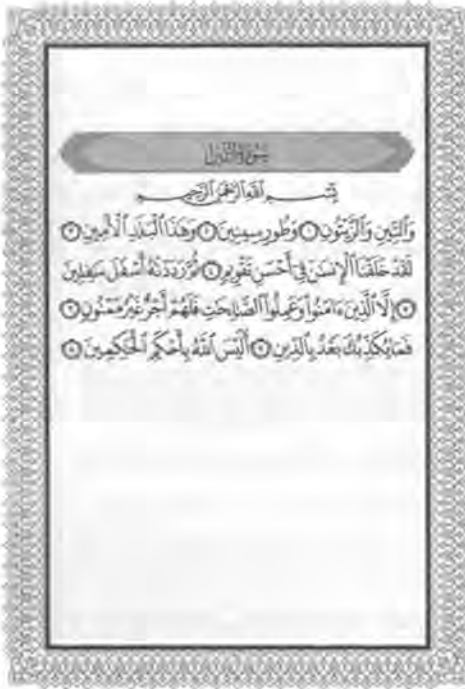 سُورَةُ
بِسْمِ ٱللَّهِ ٱلرَّحْمَٰنِ ٱلرَّحِيمِ
وَٱلتِّينِ وَٱلزَّيْتُونِ ۝ وَطُورِ سِينِينَ ۝ وَهَٰذَا ٱلْبَلَدِ ٱلْأَمِينِ ۝
لَقَدْ خَلَقْنَا ٱلْإِنسَٰنَ فِىٓ أَحْسَنِ تَقْوِيمٍ ۝ ثُمَّ رَدَدْنَٰهُ أَسْفَلَ سَٰفِلِينَ
۝ إِلَّا ٱلَّذِينَ ءَامَنُوا۟ وَعَمِلُوا۟ ٱلصَّٰلِحَٰتِ فَلَهُمْ أَجْرٌ غَيْرُ مَمْنُونٍ ۝
فَمَا يُكَذِّبُكَ بَعْدُ بِٱلدِّينِ ۝ أَلَيْسَ ٱللَّهُ بِأَحْكَمِ ٱلْحَٰكِمِينَ ۝